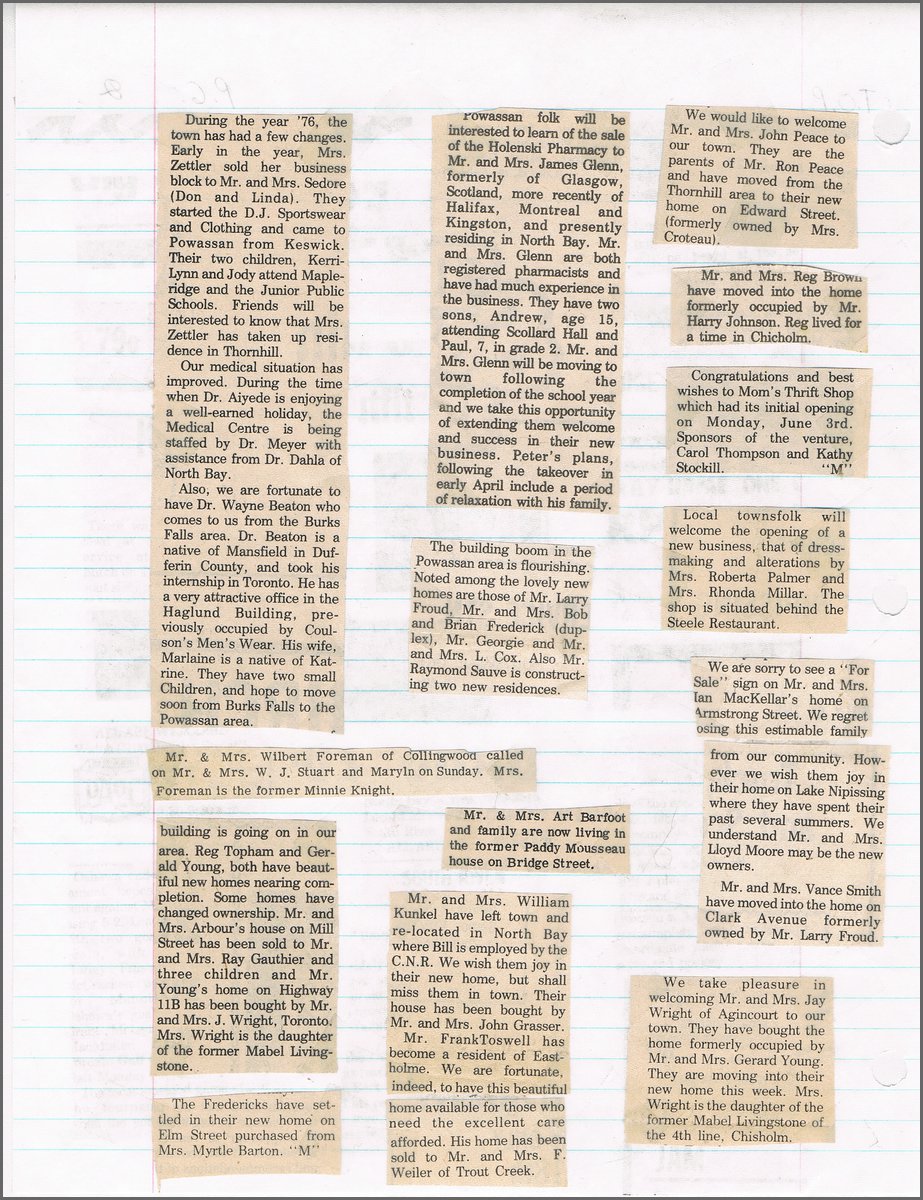 During the year '76, the
town has had a few changes.
Early in the year, Mrs.
Zettler sold her business
block to Mr. and Mrs. Sedore
(Don and Linda). They
started the D.J. Sportswear
and Clothing and came to
Powassan from Keswick.
Their two children, Kerri-
Lynn and Jody attend Maple-
ridge and the Junior Public
Schools. Friends will be
interested to know that Mrs.
Zettler has taken up resi-
dence in Thornhill.
Our medical situation has
improved. During the time
when Dr. Aiyede is enjoying
a well-earned holiday, the
Medical Centre is being
staffed by Dr. Meyer with
assistance from Dr. Dahla of
North Bay.
Also, we are fortunate to
have Dr. Wayne Beaton who
comes to us from the Burks
Falls area. Dr. Beaton is a
native of Mansfield in Duf-
ferin County, and took his
internship in Toronto. He has
a very attractive office in the
Haglund Building, pre-
viously occupied by Coul-
son's Men's Wear. His wife,
Marlaine is a native of Kat-
rine. They have two small
Children, and hope to move
soon from Burks Falls to the
Powassan area.
Mr. & Mrs. Wilbert Foreman of Collingwood called
on Mr. & Mrs. W. J. Stuart and Maryln on Sunday. Mrs.
Foreman is the former Minnie Knight.
building is going on in our
area. Reg Topham and Ger-
ald Young, both have beaut-
iful new homes nearing com-
pletion. Some homes have
changed ownership. Mr. and
Mrs. Arbour's house on Mill
Street has been sold to Mr.
and Mrs. Ray Gauthier and
three children and Mr.
Young's home on Highway
11B has been bought by Mr.
and Mrs. J. Wright, Toronto.
Mrs. Wright is the daughter
of the former Mabel Living-
stone.
The Fredericks have set-
tled in their new home on
Elm Street purchased from
Mrs. Myrtle Barton. "M"
Powassan folk will be
interested to learn of the sale
of the Holenski Pharmacy to
Mr. and Mrs. James Glenn,
formerly of Glasgow,
Scotland, more recently of
Halifax, Montreal and
Kingston, and presently
residing in North Bay. Mr.
and Mrs. Glenn are both
registered pharmacists and
have had much experience in
the business. They have two
sons, Andrew, age 15,
attending Scollard Hall and
Paul, 7, in grade 2. Mr. and
Mrs. Glenn will be moving to
town following the
completion of the school year
and we take this opportunity
of extending them welcome
and success in their new
business. Peter's plans,
following the takeover in
early April include a period
of relaxation with his family.
The building boom in the
Powassan area is flourishing.
Noted among the lovely new
homes are those of Mr. Larry
Froud, Mr. and Mrs. Bob
and Brian Frederick (dup-
lex), Mr. Georgie and Mr.
and Mrs. L. Cox. Also Mr.
Raymond Sauve is construct-
ing two new residences.
Mr. & Mrs. Art Barfoot
and family are now living in
the former Paddy Mousseau
house on Bridge Street.
Mr. and Mrs. William
Kunkel have left town and
re-located in North Bay
where Bill is employed by the
C.N.R. We wish them joy in
their new home, but shall
miss them in town. Their
house has been bought by
Mr. and Mrs. John Grasser.
Mr. FrankToswell has
become a resident of East-
holme. We are fortunate,
indeed, to have this beautiful
home available for those who
need the excellent care
afforded. His home has been
sold to Mr. and Mrs. F.
Weiler of Trout Creek.
We would like to welcome
Mr. and Mrs. John Peace to
our town. They are the
parents of Mr. Ron Peace
and have moved from the
Thornhill area to their new
home on Edward Street.
(formerly owned by Mrs.
Croteau).
Mr. and Mrs. Reg Brown
have moved into the home
formerly occupied by Mr.
Harry Johnson. Reg lived for
a time in Chicholm.
Congratulations and best
wishes to Mom's Thrift Shop
which had its initial opening
on Monday, June 3rd.
Sponsors of the venture,
Carol Thompson and Kathy
Stockill. "M"
Local townsfolk will
welcome the opening of a
new business, that of dress-
making and alterations by
Mrs. Roberta Palmer and
Mrs. Rhonda Millar. The
shop is situated behind the
Steele Restaurant.
We are sorry to see a "For
Sale" sign on Mr. and Mrs.
Ian MacKellar's home on
Armstrong Street. We regret
osing this estimable family
from our community. How-
ever we wish them joy in
their home on Lake Nipissing
where they have spent their
past several summers. We
understand Mr. and Mrs.
Lloyd Moore may be the new
owners.
Mr. and Mrs. Vance Smith
have moved into the home on
Clark Avenue formerly
owned by Mr. Larry Froud.
We take pleasure in
welcoming Mr. and Mrs. Jay
Wright of Agincourt to our
town. They have bought the
home formerly occupied by
Mr. and Mrs. Gerard Young.
They are moving into their
new home this week. Mrs.
Wright is the daughter of the
former Mabel Livingstone of
the 4th line, Chisholm.